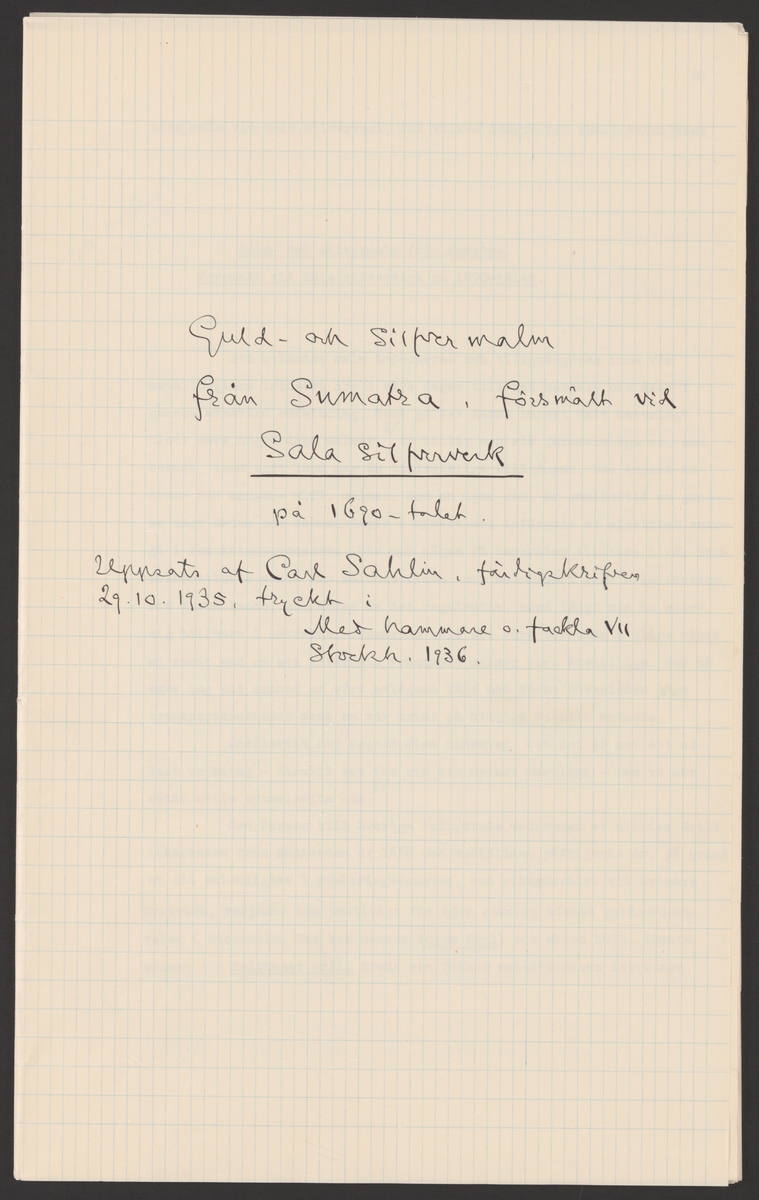 Guld- och silfvermalm
från Sumatra, försmält vid
Sala silfververk
på 1690-talet.
Uppsats af Carl Sahlin, färdigskrifven
29.10.1935, tryckt i
Med hammare o. fackla VII
Stockh. 1936.